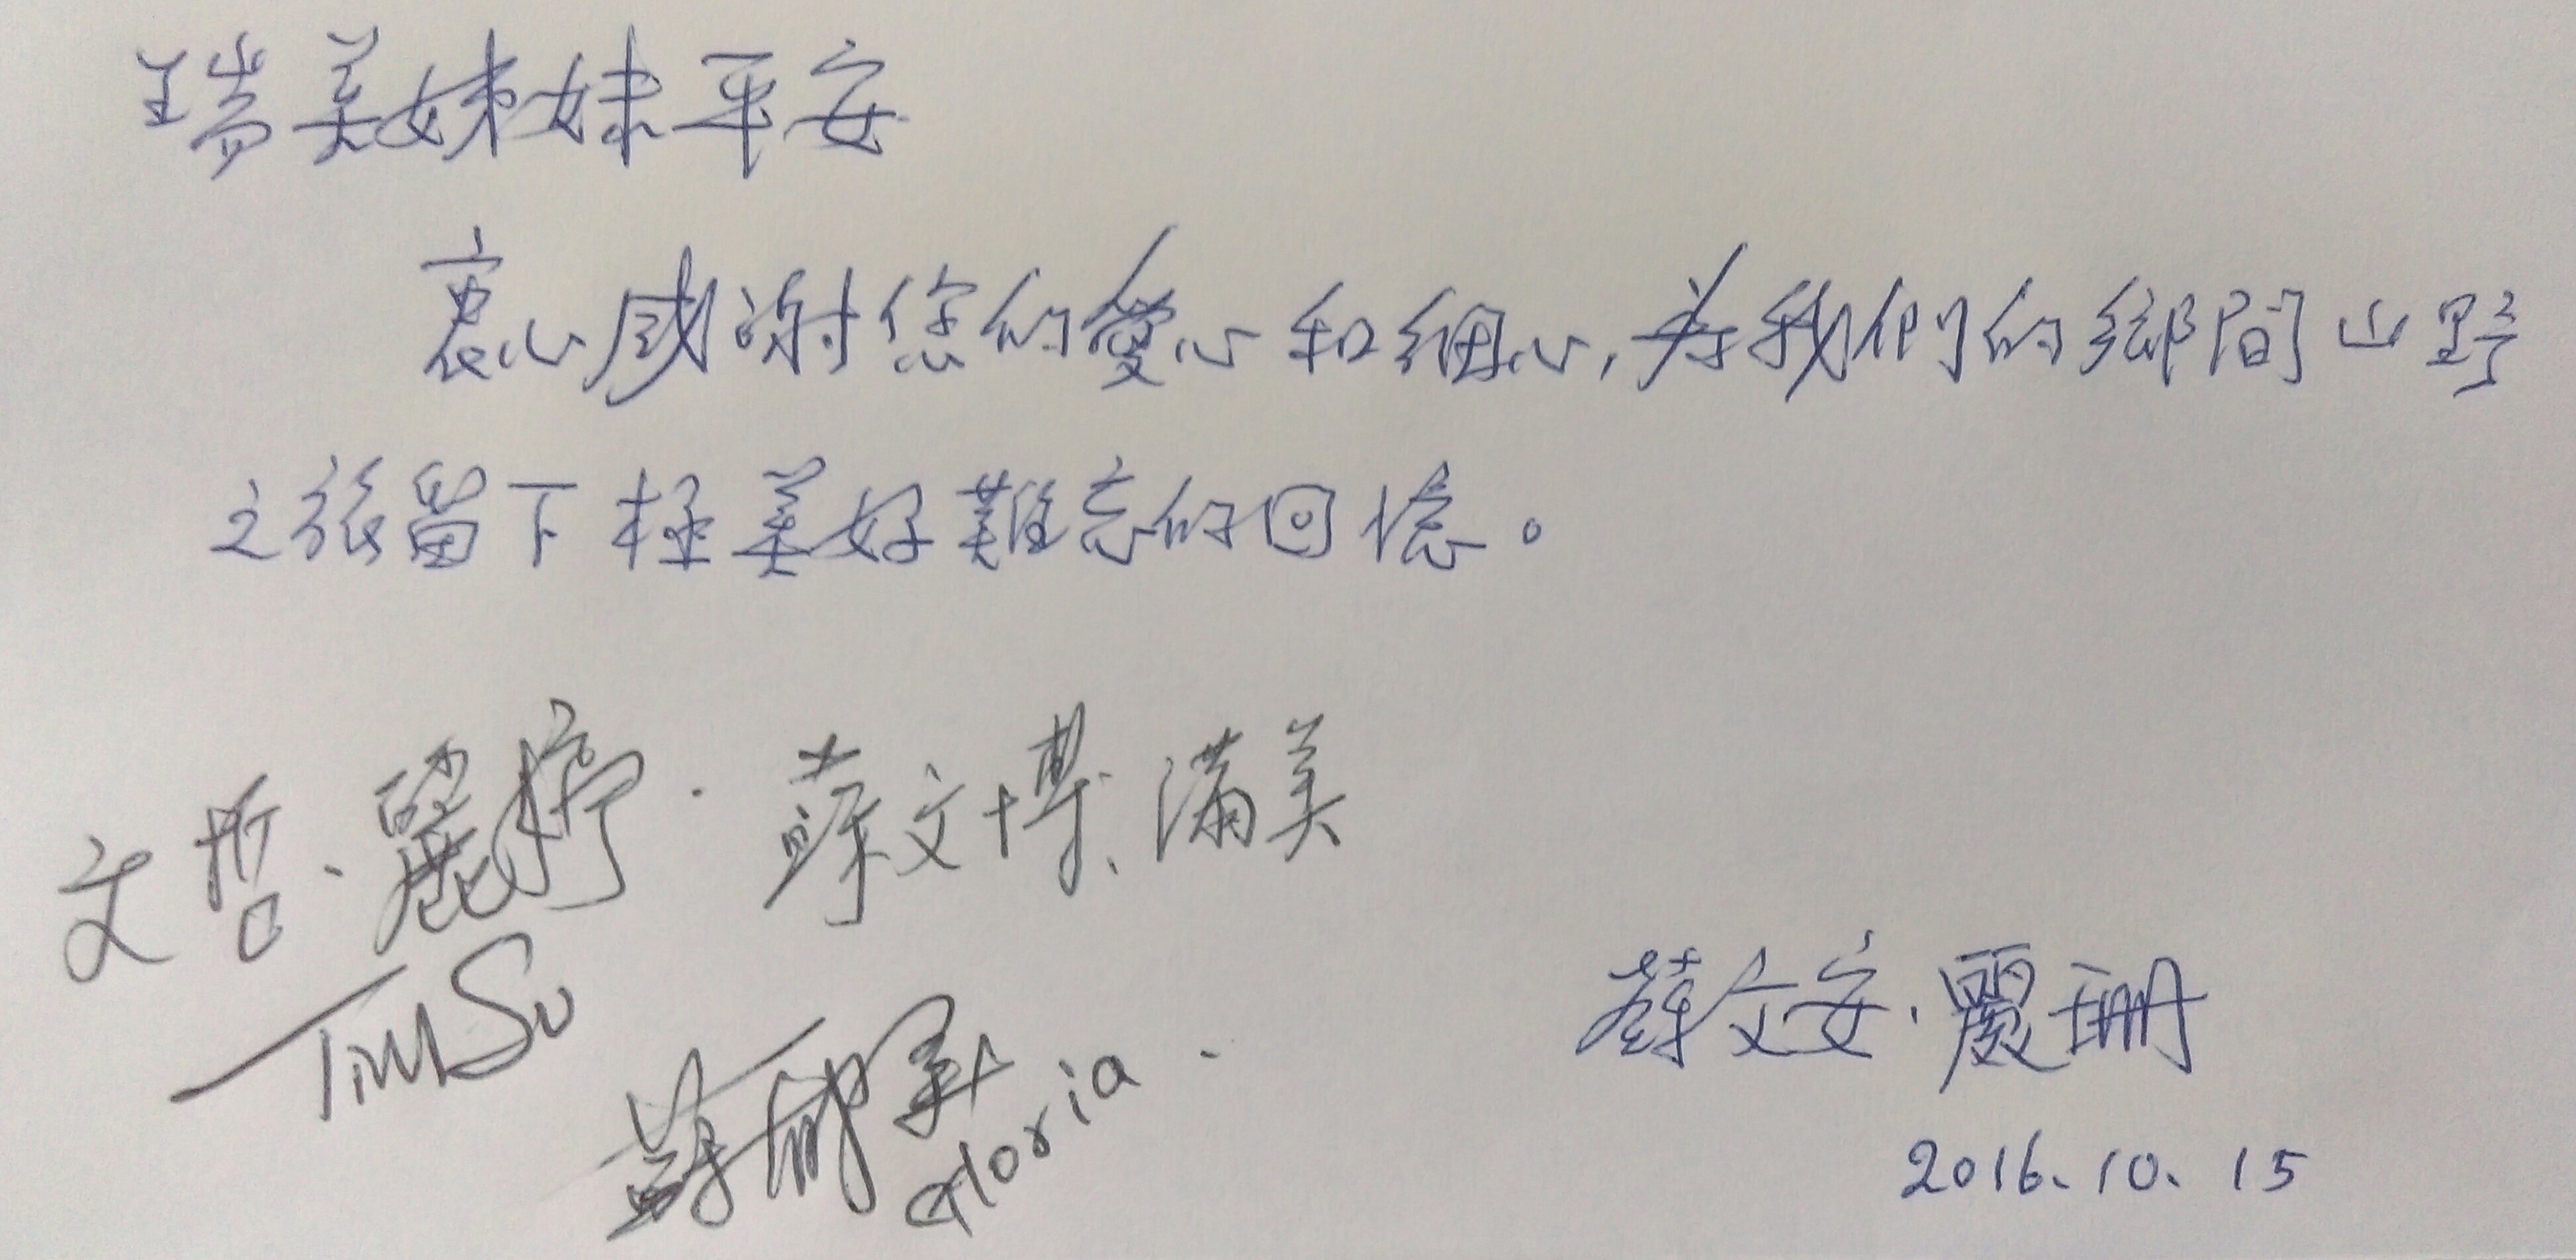 瑞美姊妹平安
衷心感謝您的愛心和細心,為我們的鄉間山野
之旅留下極美好難忘的回憶。
文哲、麗婷. 蘇文博、滿美
Tim Su
蘇 Gloria.
蘇文安、麗珊
2016.10.15